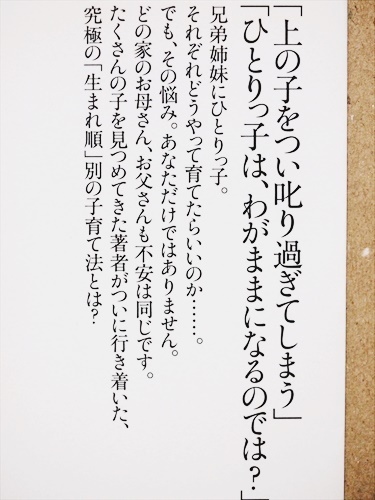 「上の子をつい叱り過ぎてしまう」
「ひとりっ子は、わがままになるのでは?」
兄弟姉妹にひとりっ子。
それぞれどうやって育てたらいいのか……。
でも、その悩み。あなただけではありません。
どの家のお母さん、お父さんも不安は同じです。
たくさんの子を見つめてきた著者がついに行き着いた、
究極の「生まれ順」別の子育て法とは?